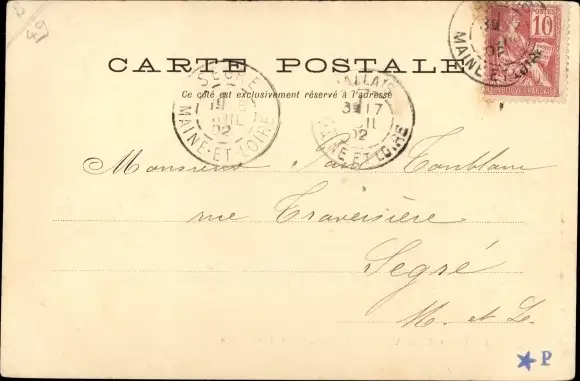 CARTE POSTALE
Ce côté est exclusivement réservé à l'adresse
POSTES
10
SEGRÉ
JUIL
02
MAINE-ET-LOIRE
17
JUIL
02
MAINE-ET-LOIRE
02
MAINE-ET-LOIRE
Monsieur Paul Toublanc
rue Traversière
Segré
M. et L.
P